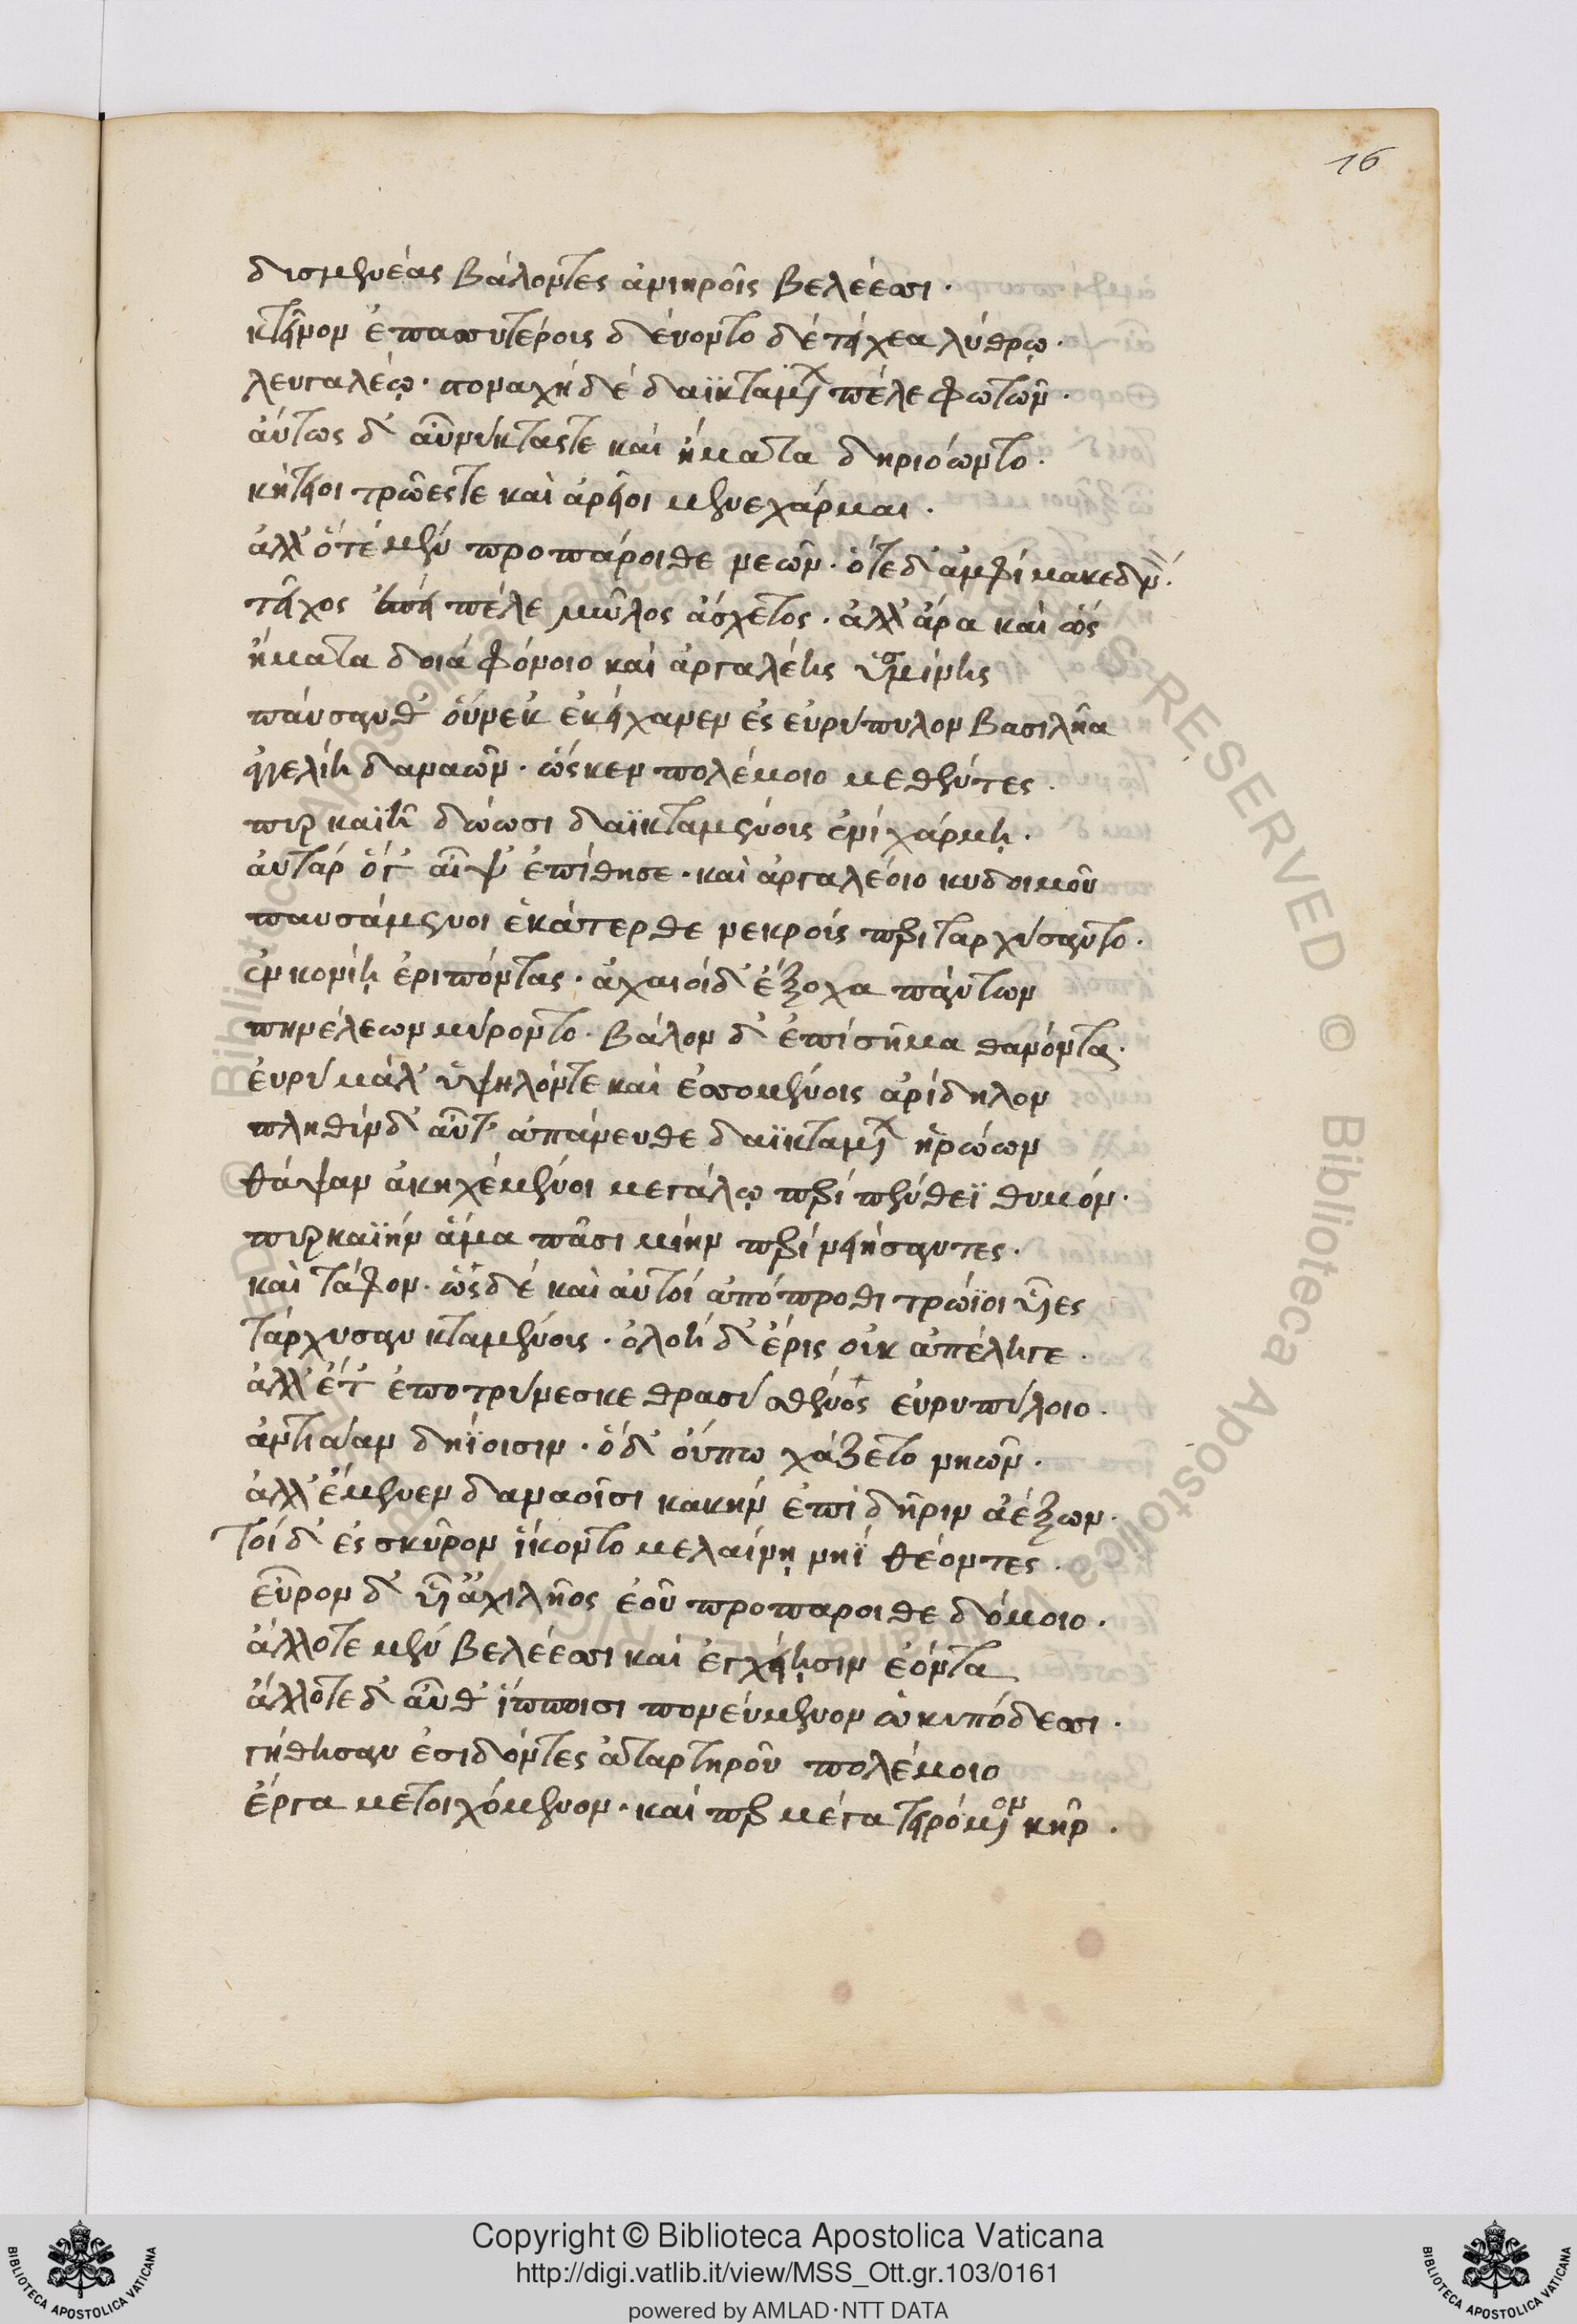 16
δυσμενέας βάλοντες ἀνιηροῖς βελέεσσι.
κτεῖνον ἐπασσυτέροις δεύοντο δὲ τείχεα λύθρω.
λευγαλέω. στοναχὴ δὲ δαϊκταμένων πέλε φωτῶν.
αὕτως δ' αὖ νύκτας τε καὶ ἤματα δηριόωντο.
κήτειοι τρῶές τε καὶ ἀρήϊοι μενεχάρμαι.
ἀλλ' ὁτὲ μὲν προπάροιθε νεῶν. ὁτὲ δ' ἀμφὶ μακεδνόν.
τεῖχος ἐπεὶ πέλε μῶλος ἄσχετος. ἀλλ' ἄρα καὶ ὣς
ἤματα δοιὰ φόνοιο καὶ ἀργαλέης ὑσμίνης
παύσανθ' οὕνεκ' ἐκείχανεν ἐς εὐρύπυλον βασιλῆα
ἀγγελίη δαναῶν. ὥς κεν πολέμοιο μεθέντες.
πυρκαϊῇ δώωσι δαϊκταμένους ἐνὶ χάρμῃ.
αὐτὰρ ὅγ' αἶψ' ἐπίθησε. καὶ ἀργαλέοιο κυδοιμοῦ
παυσάμενοι ἑκάτερθε νεκροὺς περιταρχύσαντο.
ἐν κονίῃ ἐριπόντας. ἀχαιοὶ δ' ἔξοχα πάντων
πηνέλεων μύροντο. βάλον δ' ἐπὶ σῆμα θανόντα.
εὐρὺ μάλ' ὑψηλόν τε καὶ ἐσσομένοις ἀρίδηλον
πληθὺν δ' αὖτ' ἀπάνευθε δαϊκταμένων ἡρώων
θάψαν ἀκηχέμενοι μεγάλω περὶ πένθεϊ θυμόν.
πυρκαϊὴν ἅμα πᾶσι μίην περινηήσαντες.
καὶ τάφον. ὣς δὲ καὶ αὐτοὶ ἀπόπροθι τρώϊοι υἷες
τάρχυσαν κταμένους. ὀλοὴ δ' ἔρις οὐκ ἀπέληγε.
ἀλλ' ἔτ' ἐποτρύνεσκε θρασὺ σθένος εὐρυπύλοιο.
ἀντιάαν δηΐοισιν. ὁ δ' οὔπω χάζετο νηῶν.
ἀλλ' ἔμενεν δαναοῖσι κακὴν ἐπὶ δῆριν ἀέξων.
τοὶ δ' ἐς σκῦρον ἵκοντο μελαίνῃ νηῒ θέοντες.
εὗρον δ' υἷ' ἀχιλῆος ἑοῦ προπάροιθε δόμοιο.
ἄλλοτε μὲν βελέεσσι καὶ ἐγχείῃσιν ἑόντα
ἄλλοτε δ' αὖθ' ἵπποισι πονεύμενον ὠκυπόδεσσι.
γήθησαν ἐσιδόντες ἀταρτηροῦ πολέμοιο
ἔργα μετοιχόμενον. καὶ περ μέγα τειρόμενον κῆρ.
Copyright © Biblioteca Apostolica Vaticana
http://digi.vatlib.it/view/MSS_Ott.gr.103/0161
powered by AMLAD·NTT DATA